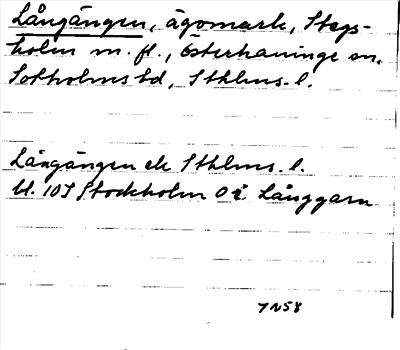 Långängen, ägomark, Stegs-
holm m. fl., Österhaninge sn,
Sotholms hd, Sthlms. l.
Långängen ek Sthlms. l.
bl. 10I Stockholm Oi Långgarn
7N58